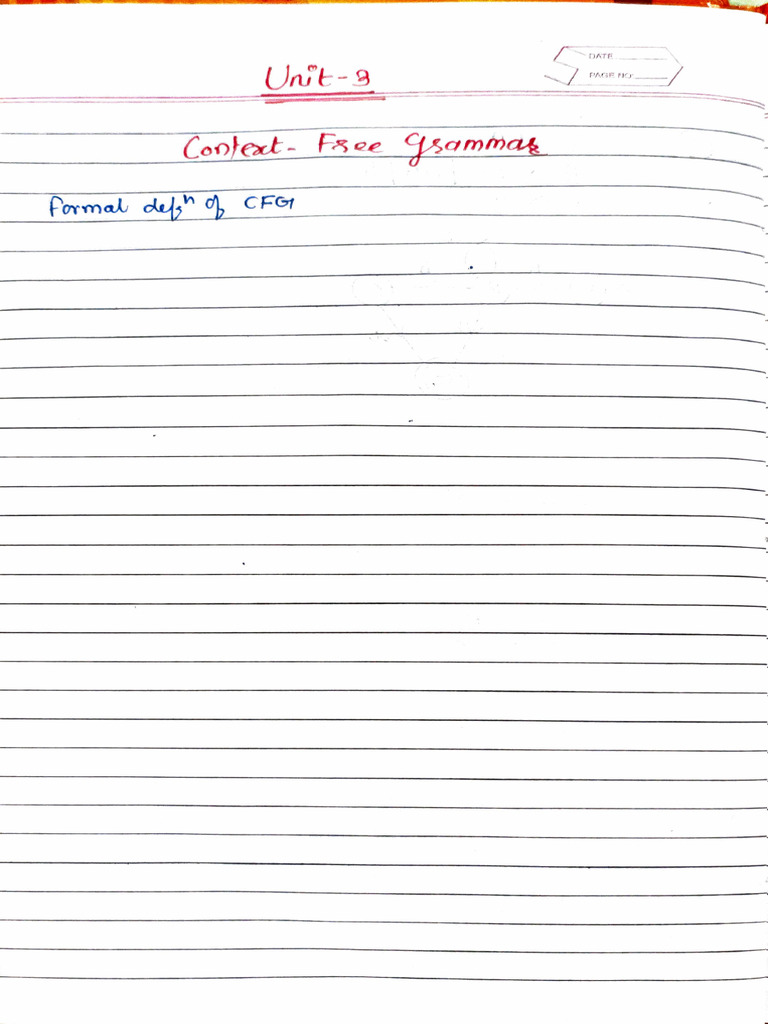 Unit-3
DATE
PAGE NO.
Context-Free Grammar
Formal defⁿ of CFG